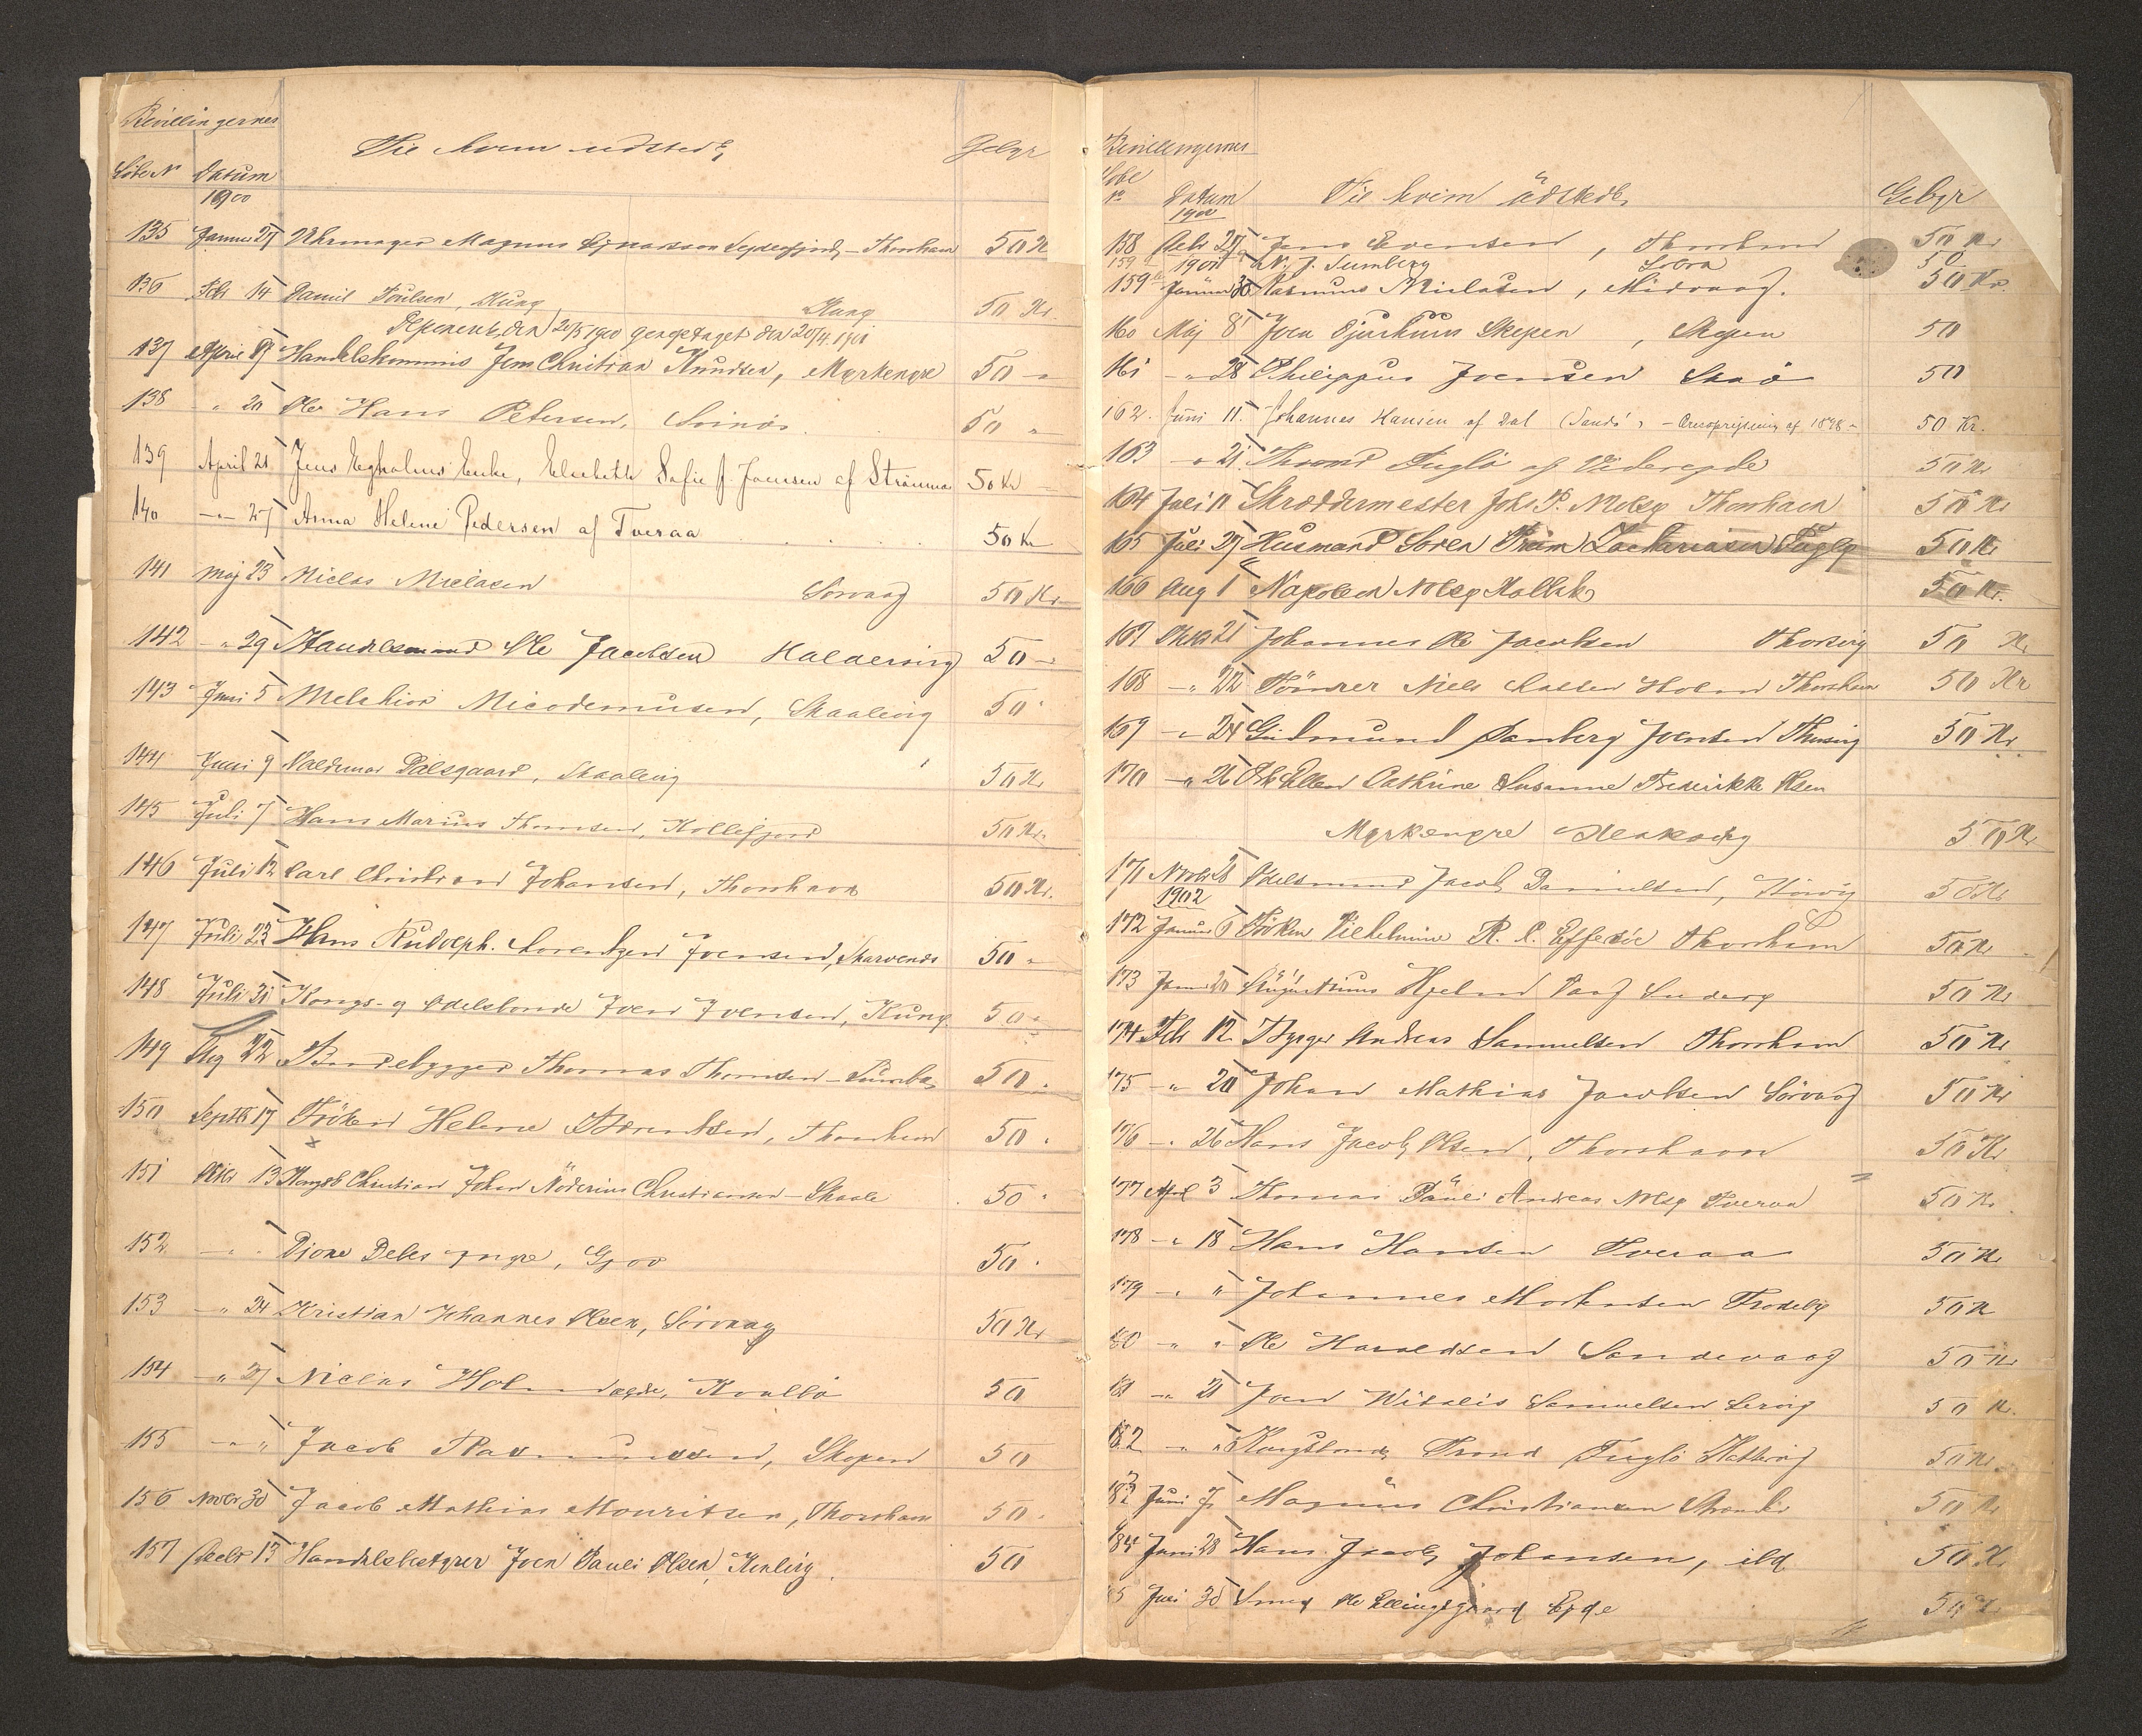 Bevillingernes
Löbe N Datum Til hvem udstedt Gebyr
1900
135 Januar 27 Uhrmager Magnus Ejnarsson Sejdesfjord, - Thorshavn 50 Kr
136 Febr 14 Daniel Poulsen, Kung Kung 50 Kr.
Deponeret den 20/5 1900 gengetaget den 20/4 1901
137 April 19 Handelskommis Jens Christian Knudsen, Myrkengre 50 -
138 " 20 Ole Hans Petersen, Svinö. 50 "
139 April 21 Jens Egholms Enke, Elsebeth Sofie J. Joensen af Strömnæs 50 Kr
140 -"- 27 Anna Helene Pedersen af Tveraa 50 Kr
141 Maj 23 Niclas Niclasen Sörvaag 50 Kr
142 -" 29 Handelsmand Ole Jacobsen Haldersvig 50 -
143 Juni 5 Melchior Nicodemusen, Skaalevig 50 "
144 Juni 9 Valdemar Dalsgaard, Skaalevig 50 Kr
145 Juli 7 Hans Marius Thomsen, Kollefjord 50 Kr.
146 Juli 12 Carl Christian Johansen, Thorshavn 50 Kr.
147 Juli 23 Hans Rudolph Lorentzen Joensen, Skarvenæs 50 -
148 Juli 31 Kongs- og Odelsbonde Joen Joensen, Kung 50 "
149 Aug 22 Bandebygger Thomas Thomsen - Sumbø 50 "
150 Septb 17 Fröken Helene Berentsen, Thorshavn 50 "
151 Oktbr 13 Kongsb Christian Johan Nöderius Christiansen - Skaale 50 "
152 -"- Djone Debes yngre, Gjov 50 "
153 -" 24 Kristian Johannes Olsen, Sörvaag 50 Kr
154 -" 27 Niclas Holm Kvalbö 50
155 -"- " Jacob Rasmussen, Skopen 50
156 Novbr 30 Jacob Mathias Mouritsen, Thorshavn 50 "
157 Decbr 13 Handelsbestyrer Joen Pauli Olsen, Kvalvig. 50
Bevillingernes
Löbe Nr Datum Til hvem udstedt Gebyr
1900
158 Decbr 27 Jens Evensen, Thorshavn 50 Kr
159 1901 N. J. Sumberg 50
159b Januar 30 Rasmus Niclasen, Midvaag. 50 Kr.
160 Maj 8 Joen Djurhuus Skopen, Skopen 50
161 -" 28 Philippus Joensen Skaö 50
162. Juni 11. Johannes Hansen af Dal (Sandö) - 1898 - 50 Kr.
163 -" 21. Thrond Fuglö af Videreejde 50 Kr
164 Juli 11 Skræddermester Johs. P. Nolsø Thorshavn 50 Kr
165 Juli 27 Husmand Sören Pram Zachariasen Fuglø 50 Kr
166 Aug 1 Napoleon Nolsø Kollefj 50 Kr.
167 Oktbr 21 Johannes Ole Jacobsen Thorsvig 50 Kr
168 -" 22 Tömrer Niels Hansen Holm Thorshavn 50 Kr
169 -" 24 Gudmund Samberg Joensen Thorsvig 50 Kr.
170 -" 26 Ellen Cathrine Susanne Frederikke Olsen
Myrkengre 50 Kr
171 Novbr 28 Odelsmand Jacob Danielsen, Hovvig 50 Kr
1902
172 Januar 6 Fröken Vilhelmine R. C. Effersöe Thorshavn 50 Kr
173 Janu 20 Augustinus Hjelm Vaag Suderø 50 Kr
174 Febr 12. Brygger Andreas Samuelsen Thorshavn 50 Kr
175 -" 20 Johan Mathias Jacobsen Sörvaag 50 Kr
176 -" 26 Hans Jacob Olsen, Thorshavn 50 Kr
177 April 3 Thomas Pauli Andreas Nolsø Tveraa 50 Kr
178 -" 18 Hans Hansen Tveraa 50 Kr
179 -" " Johannes Mortensen Frodebø 50 Kr
180 -" " Ole Haraldsen Sandevaag 50 Kr
181 -" 21 Joen Witalis Samuelsen Lervig 50 Kr.
182 -" " Kongsbonde Trond Fuglö Hattevig 50 Kr.
183 Juni 7 Magnus Christiansen Strander 50 Kr
184 Juni 28 Hans Jacob Johansen, ibd 50 Kr
85 Juni 30 Smed Ole Ellingsgaard Ejde 50 Kr